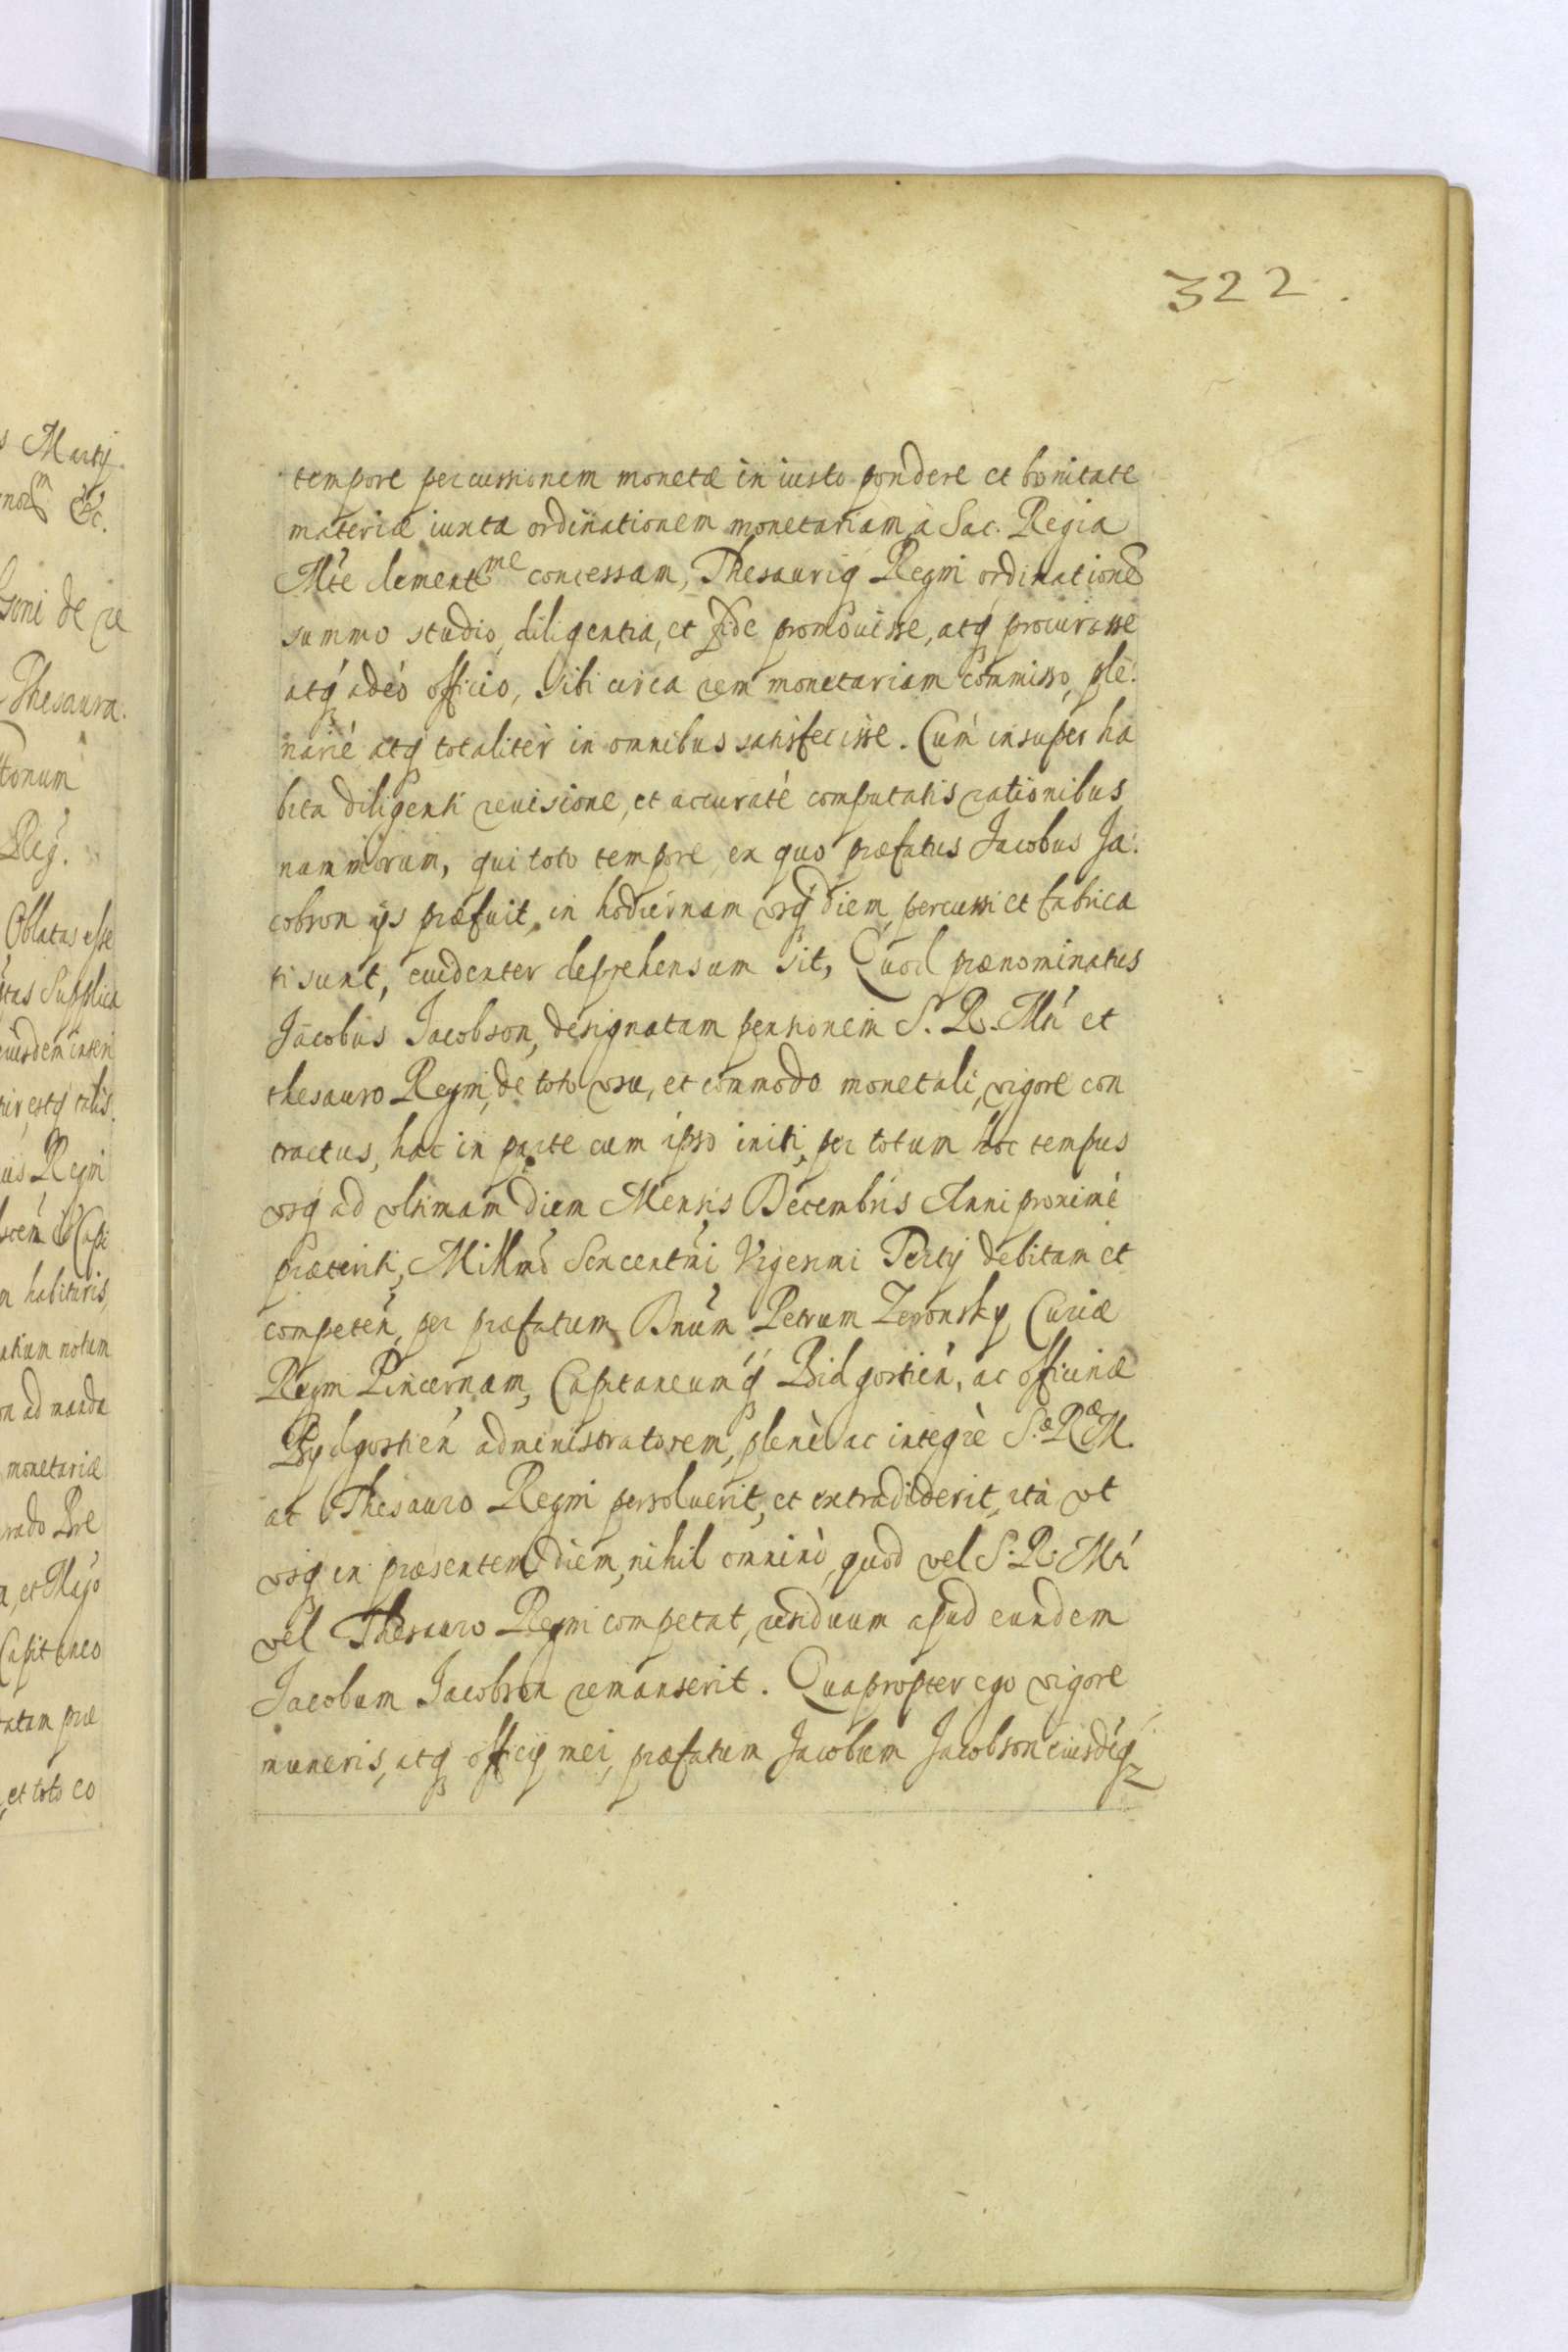 322.
tempore percussionem monetæ in iusto pondere et bonitate
materiæ iuxta ordinationem monetariam à Sac. Regia
Mte clementme concessam, Thesauriq Regni ordinatione
summo studio, diligentia, et fide promouisse, atq procurasse
atq adeò officio, sibi circa rem monetariam commisso, ple:
narié atq totaliter in omnibus satisfecisse. Cúm insuper ha
bita diligenti reuisione, et accuraté computatis rationibus
nummorum, qui toto tempore, ex quo præfatus Jacobus Ja:
cobson ijs præfuit, in hodiernam vsq diem, percussi et fabrica
ti sunt, euidenter deprehensum sit, Quod prænominatus
Jacobus Jacobson, designatam pensionem S. R. Mti et
thesauro Regni, de toto vsu, et commodo monetali, vigore con
tractus, hac in parte cum ipso initi, per totum hoc tempus
vsq ad vltimam diem Mensis Decembris Anni proximé
præteriti, Millmi Sexcentmi Vigesimi Tertij debitam et
competeñ, per præfatum Dnum Petrum Zeronsky Curiæ
Regni Pincernam, Capitaneumq Bidgostień, ac officinæ
Bydgostień administratorem, plenè ac integrè S.æ Ræ M.
ac Thesauro Regni persoluerit, et extradiderit, ita vt
vsq in præsentem diem, nihil omninò, quod vel S. R. Mti
vel Thesauro Regni competat, residuum apud eundem
Jacobum Jacobson remanserit. Quapropter ego vigore
muneris, atq officij mei, præfatum Jacobum Jacobson eiusdéq
s Martij
&c.
soni de re
Thesaura.
tonum
Reg.
Oblatas esse
tas Supplica
eiusdem inseri
tur, estq talis.
Regni
Capi
m habituris,
atium notum
on ad manda
monetariæ
rado Bre
a, et Majo
Capitaneo
tatam præ
, et toto eo